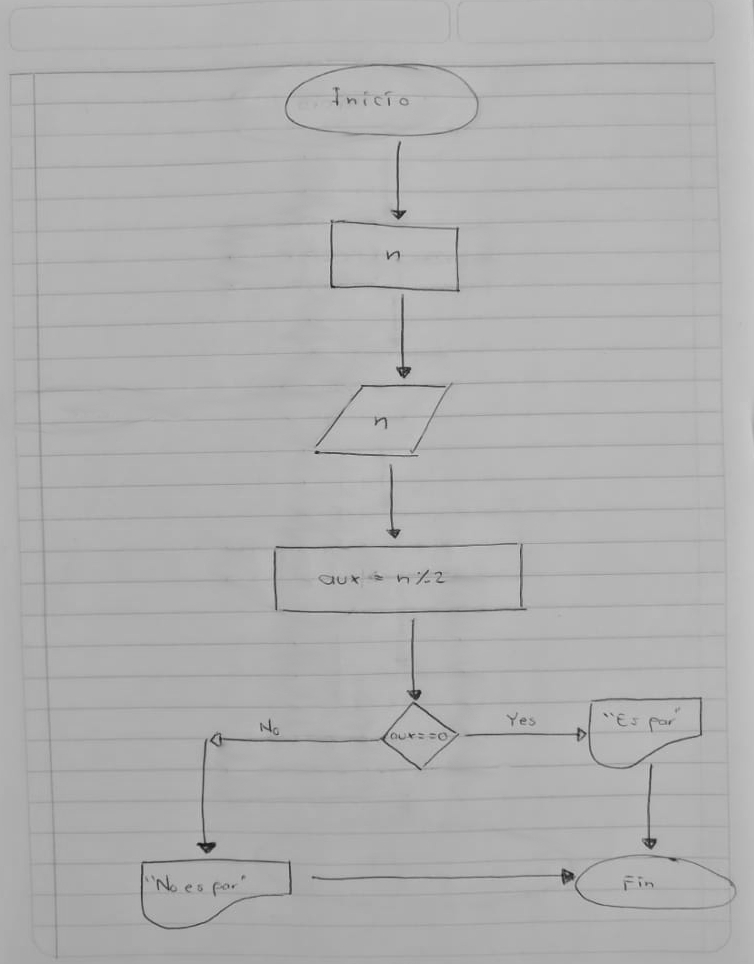 Inicio
n
n
aux = n%2
aux==0
No
Yes
"Es par"
"No es par"
Fin